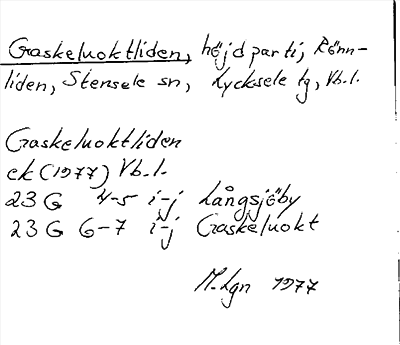 Gaskeluoktliden, höjdparti, Rönn-
liden, Stensele sn, Lycksele tg, Vb.l.
Gaskeluoktliden
ek (1977) Vb.l.
23 G 4-5 i-j Långsjöby
23 G 6-7 i-j Gaskeluokt
M. Lgn 1977